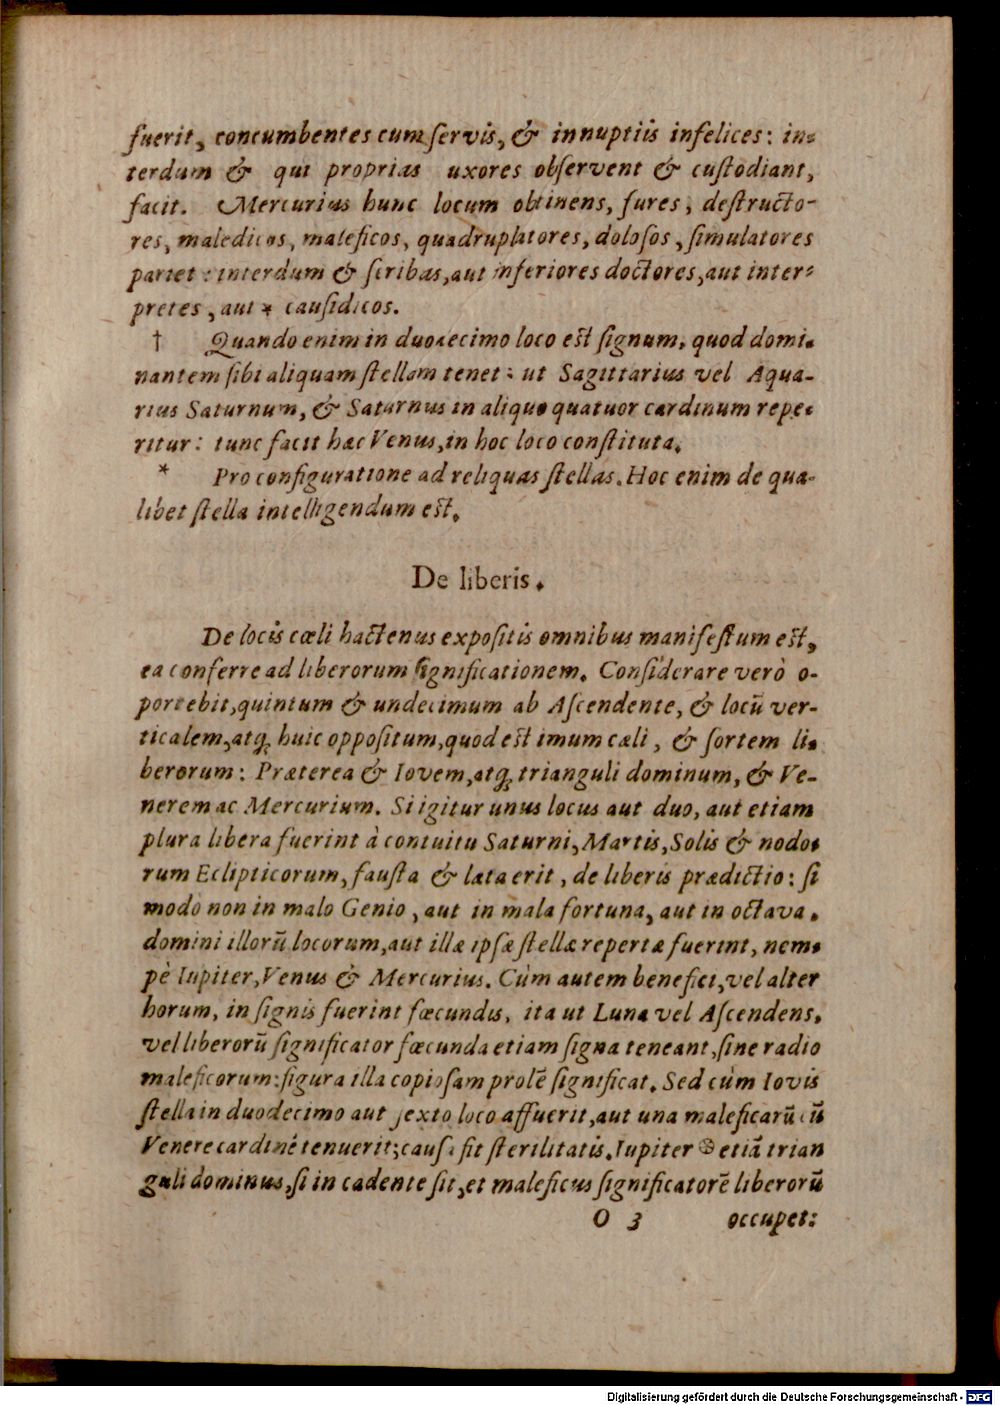 fuerit, concumbentes cum ſervis, & innuptiis infelices: in-
terdum & qui proprias uxores obſervent & cuſtodiant,
facit. Mercurius hunc locum obtinens, fures, deſtructo-
res, maledicos, maleficos, quadruplatores, doloſos, ſimulatores
pariet: interdum & ſcribas, aut inferiores doctores, aut inter-
pretes, aut * cauſidicos.
† Quando enim in duodecimo loco eſt ſignum, quod domi-
nantem ſibi aliquam ſtellam tenet: ut Sagittarius vel Aqua-
rius Saturnum, & Saturnus in aliquo quatuor cardinum repe-
ritur: tunc facit hæc Venus, in hoc loco conſtituta.
* Pro configuratione ad reliquas ſtellas. Hoc enim de qua-
libet ſtella intelligendum eſt.
De liberis.
De locis cœli hactenus expoſitis omnibus manifeſtum eſt,
ea conferre ad liberorum ſignificationem. Conſiderare verò o-
portebit, quintum & undecimum ab Aſcendente, & locū ver-
ticalem, atq; huic oppoſitum, quod eſt imum cæli, & ſortem li-
berorum: Præterea & Iovem, atq; trianguli dominum, & Ve-
nerem ac Mercurium. Si igitur unus locus aut duo, aut etiam
plura libera fuerint à contuitu Saturni, Martis, Solis & nodo-
rum Eclipticorum, fauſta & læta erit, de liberis prædictio: ſi
modò non in malo Genio, aut in mala fortuna, aut in octava,
domini illorū locorum, aut illæ ipſæ ſtellæ repertæ fuerint, nem-
pè Iupiter, Venus & Mercurius. Cùm autem benefici, vel alter
horum, in ſignis fuerint fœcundis, ita ut Luna vel Aſcendens,
vel liberorū ſignificator fœcunda etiam ſigna teneant, ſine radio
maleficorum: figura illa copioſam prolē ſignificat. Sed cùm Iovis
ſtella in duodecimo aut ſexto loco affuerit, aut una maleficarū cū
Venere cardinē tenuerit; cauſa fit ſterilitatis. Iupiter etiā trian
guli dominus, ſi in cadente ſit, et maleficus ſignificatorē liberorū
O 3 occupet:
Digitalisierung gefördert durch die Deutsche Forschungsgemeinschaft - DFG